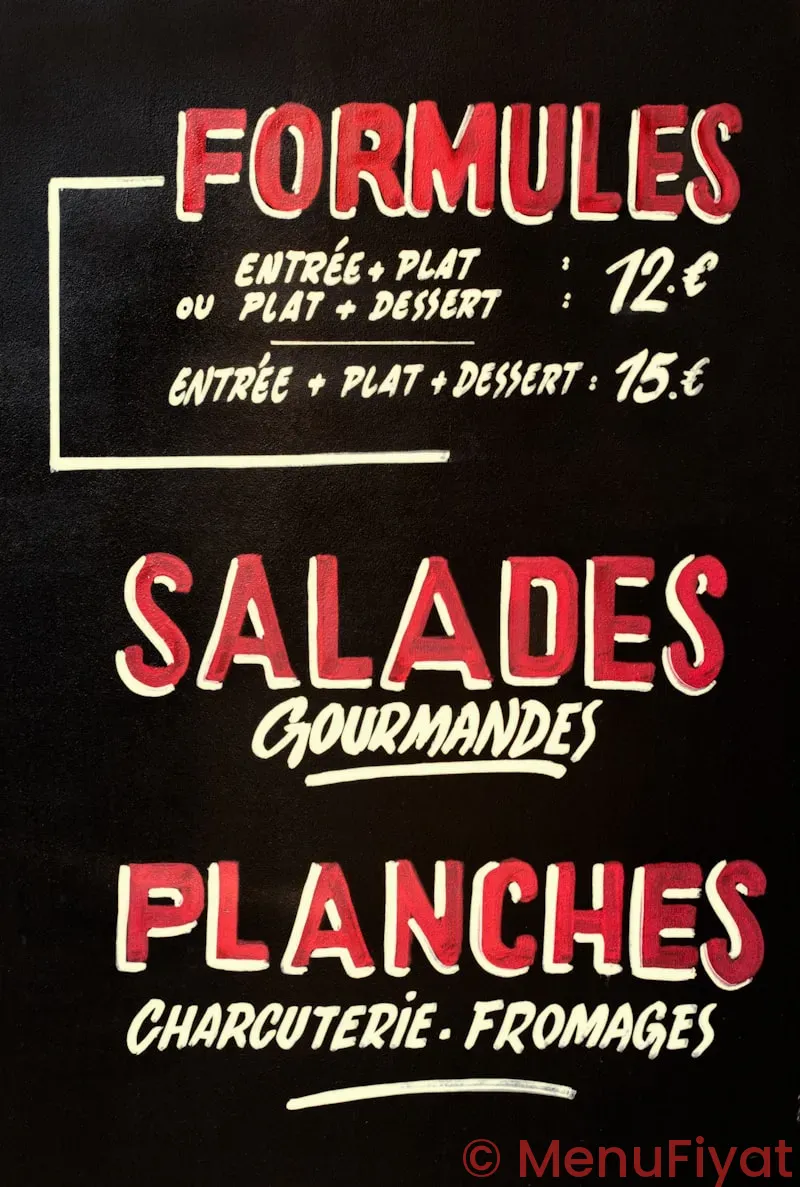 FORMULES
ENTRÉE + PLAT : 12.€
OU PLAT + DESSERT :
ENTRÉE + PLAT + DESSERT : 15.€
SALADES
GOURMANDES
PLANCHES
CHARCUTERIE. FROMAGES
© MenuFiyat